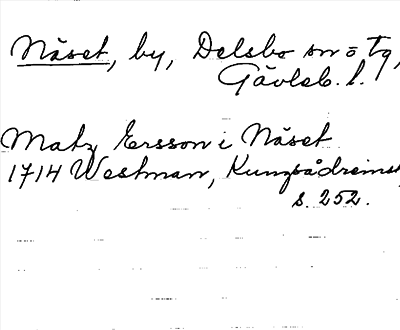 Näset, by, Delsbo sn o tg,
Gävleb. l.
Matz Ersson i Näset
1714 Westman, Kungsådrems
s. 252.